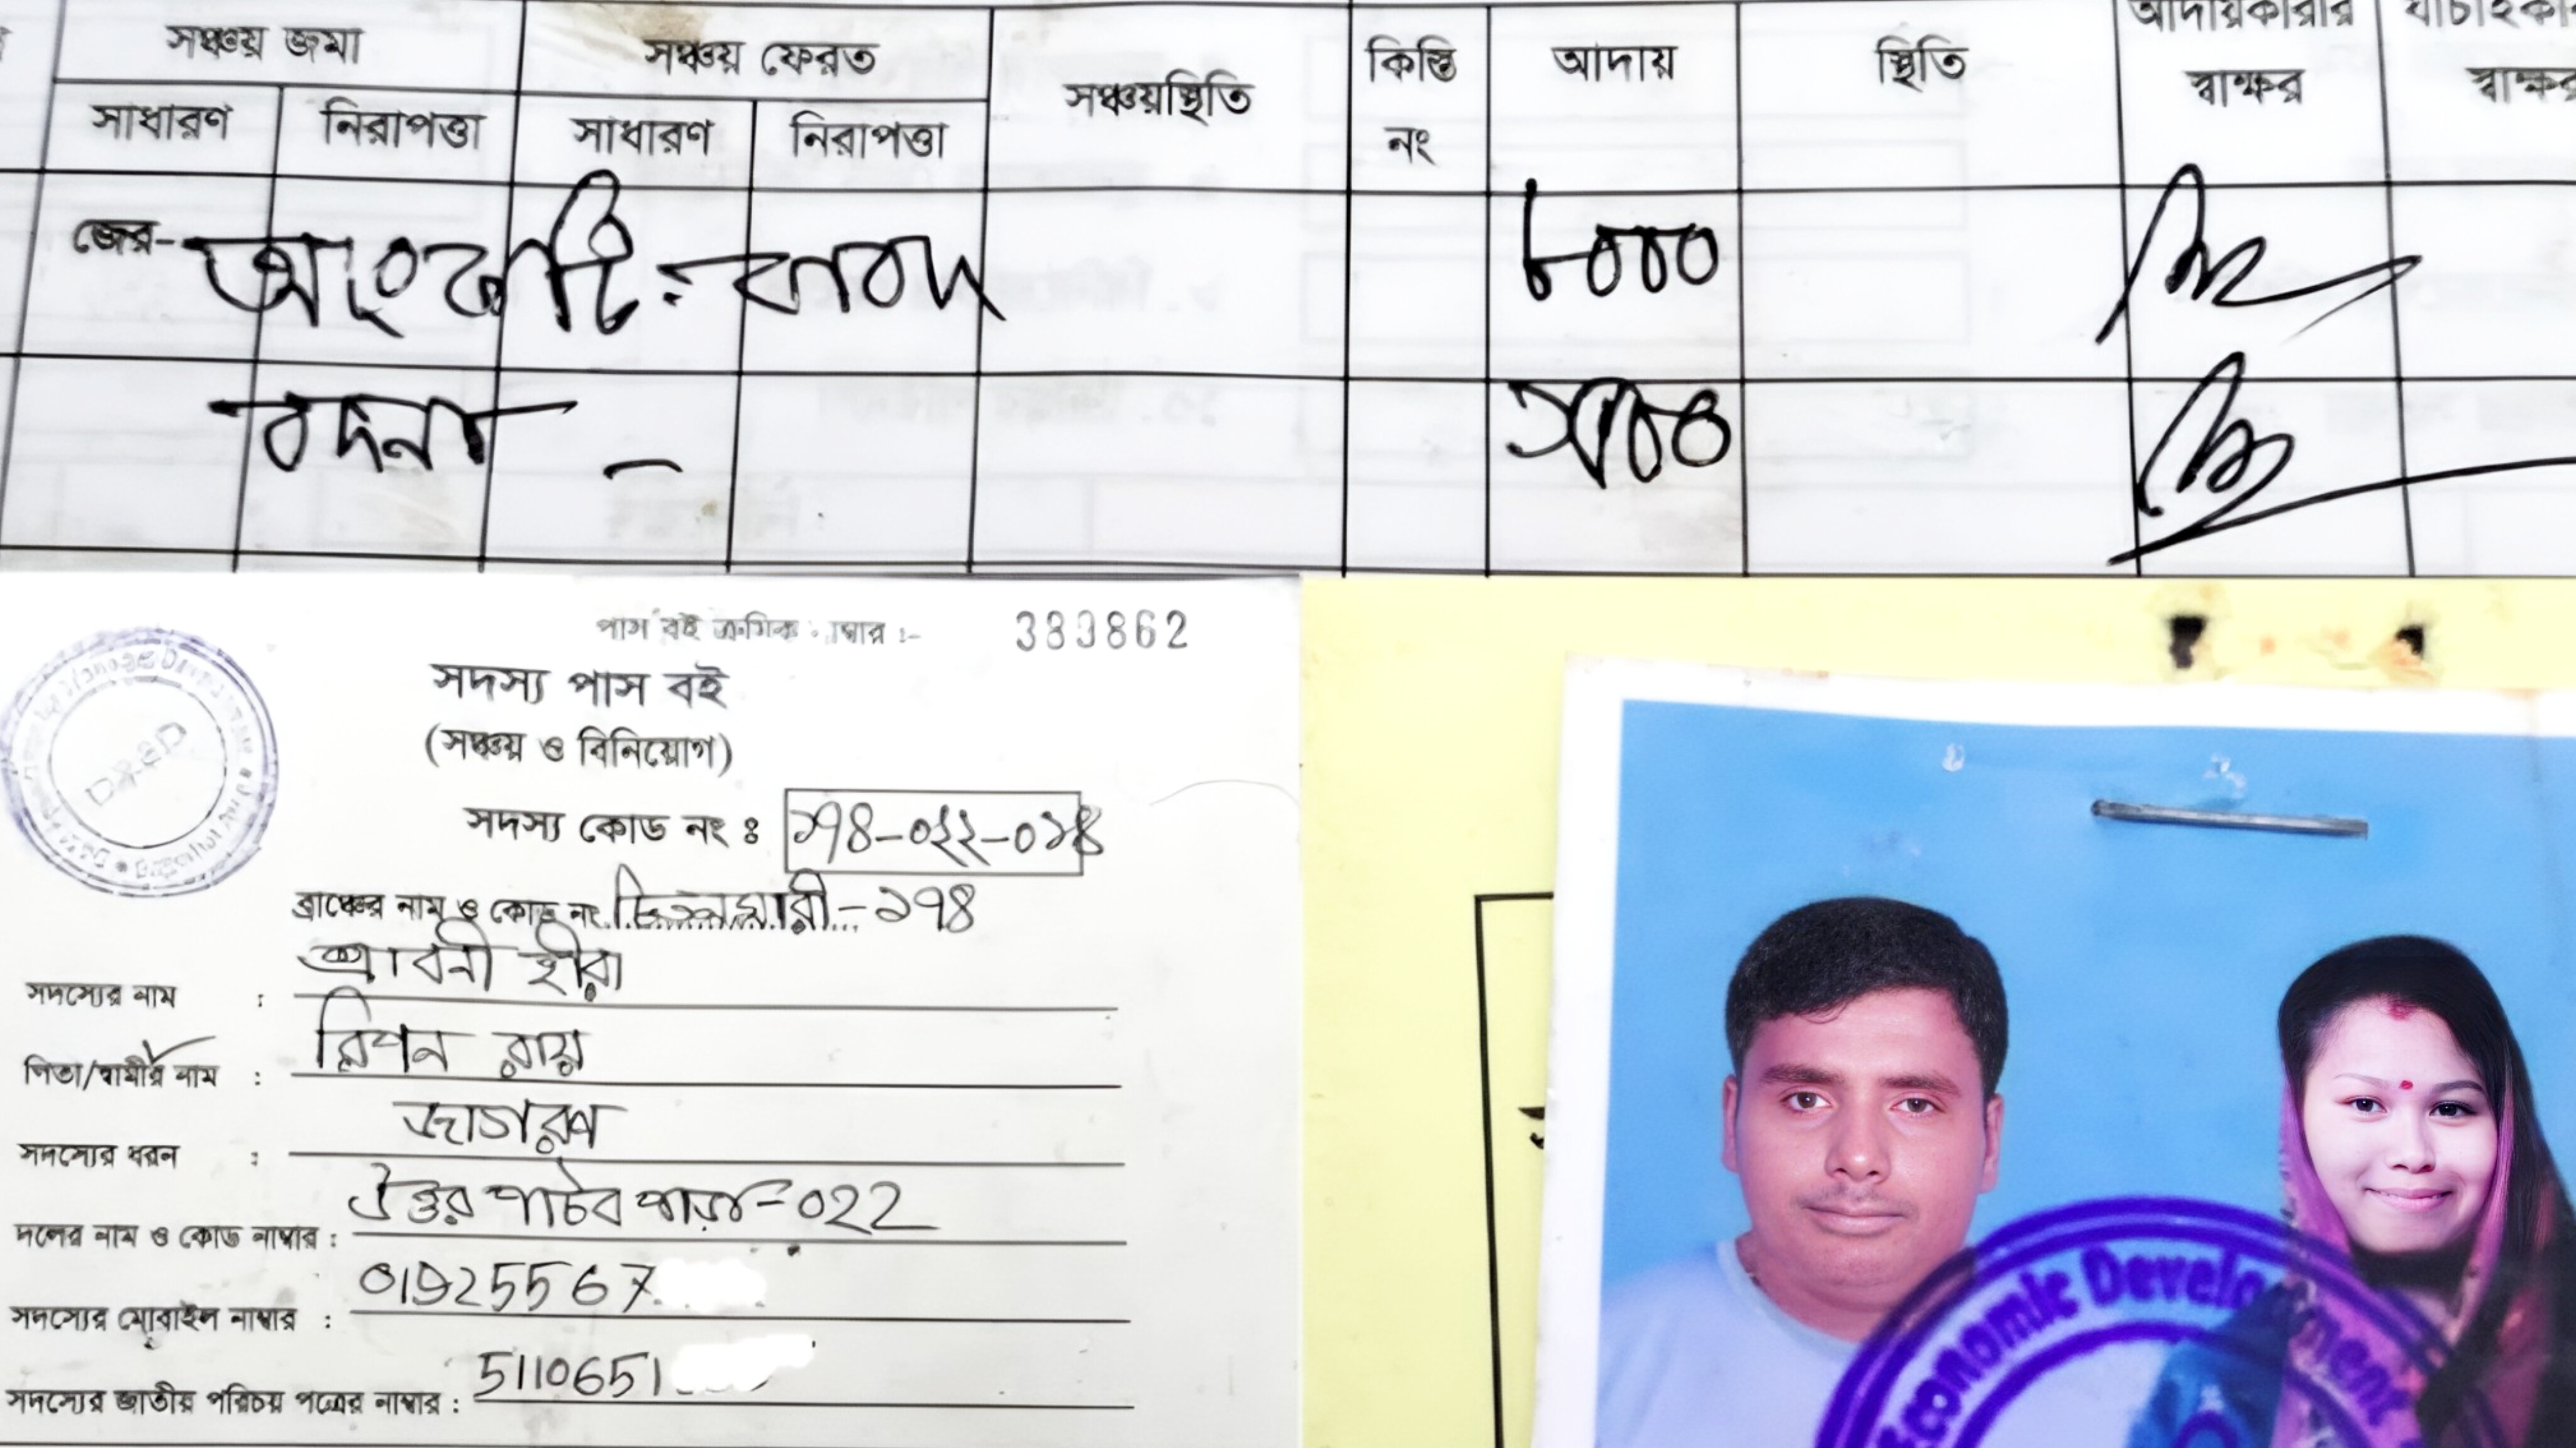 সঞ্চয় জমা সঞ্চয় ফেরত সঞ্চয়স্থিতি কিস্তি নং আদায় স্থিতি আদায়কারীর স্বাক্ষর স্বাক্ষর
সাধারণ নিরাপত্তা সাধারণ নিরাপত্তা
জের- ৮০০০
বদনা -
পাস বই ক্রমিক :- 383862
সদস্য পাস বই
(সঞ্চয় ও বিনিয়োগ)
সদস্য কোড নং ঃ ১৭৪-০২২-০১৪
ব্রাঞ্চের নাম ও কোড নং চিতলমারী-১৭৪
সদস্যের নাম : শ্রাবনী হীরা
পিতা/স্বামীর নাম : রিপন রায়
সদস্যের ধরন : জাগরণ
দলের নাম ও কোড নাম্বার : উত্তর পাটর পাড়া-022
সদস্যের মোবাইল নাম্বার : 01925567
সদস্যের জাতীয় পরিচয় পত্রের নাম্বার : 5110651
Economic Development